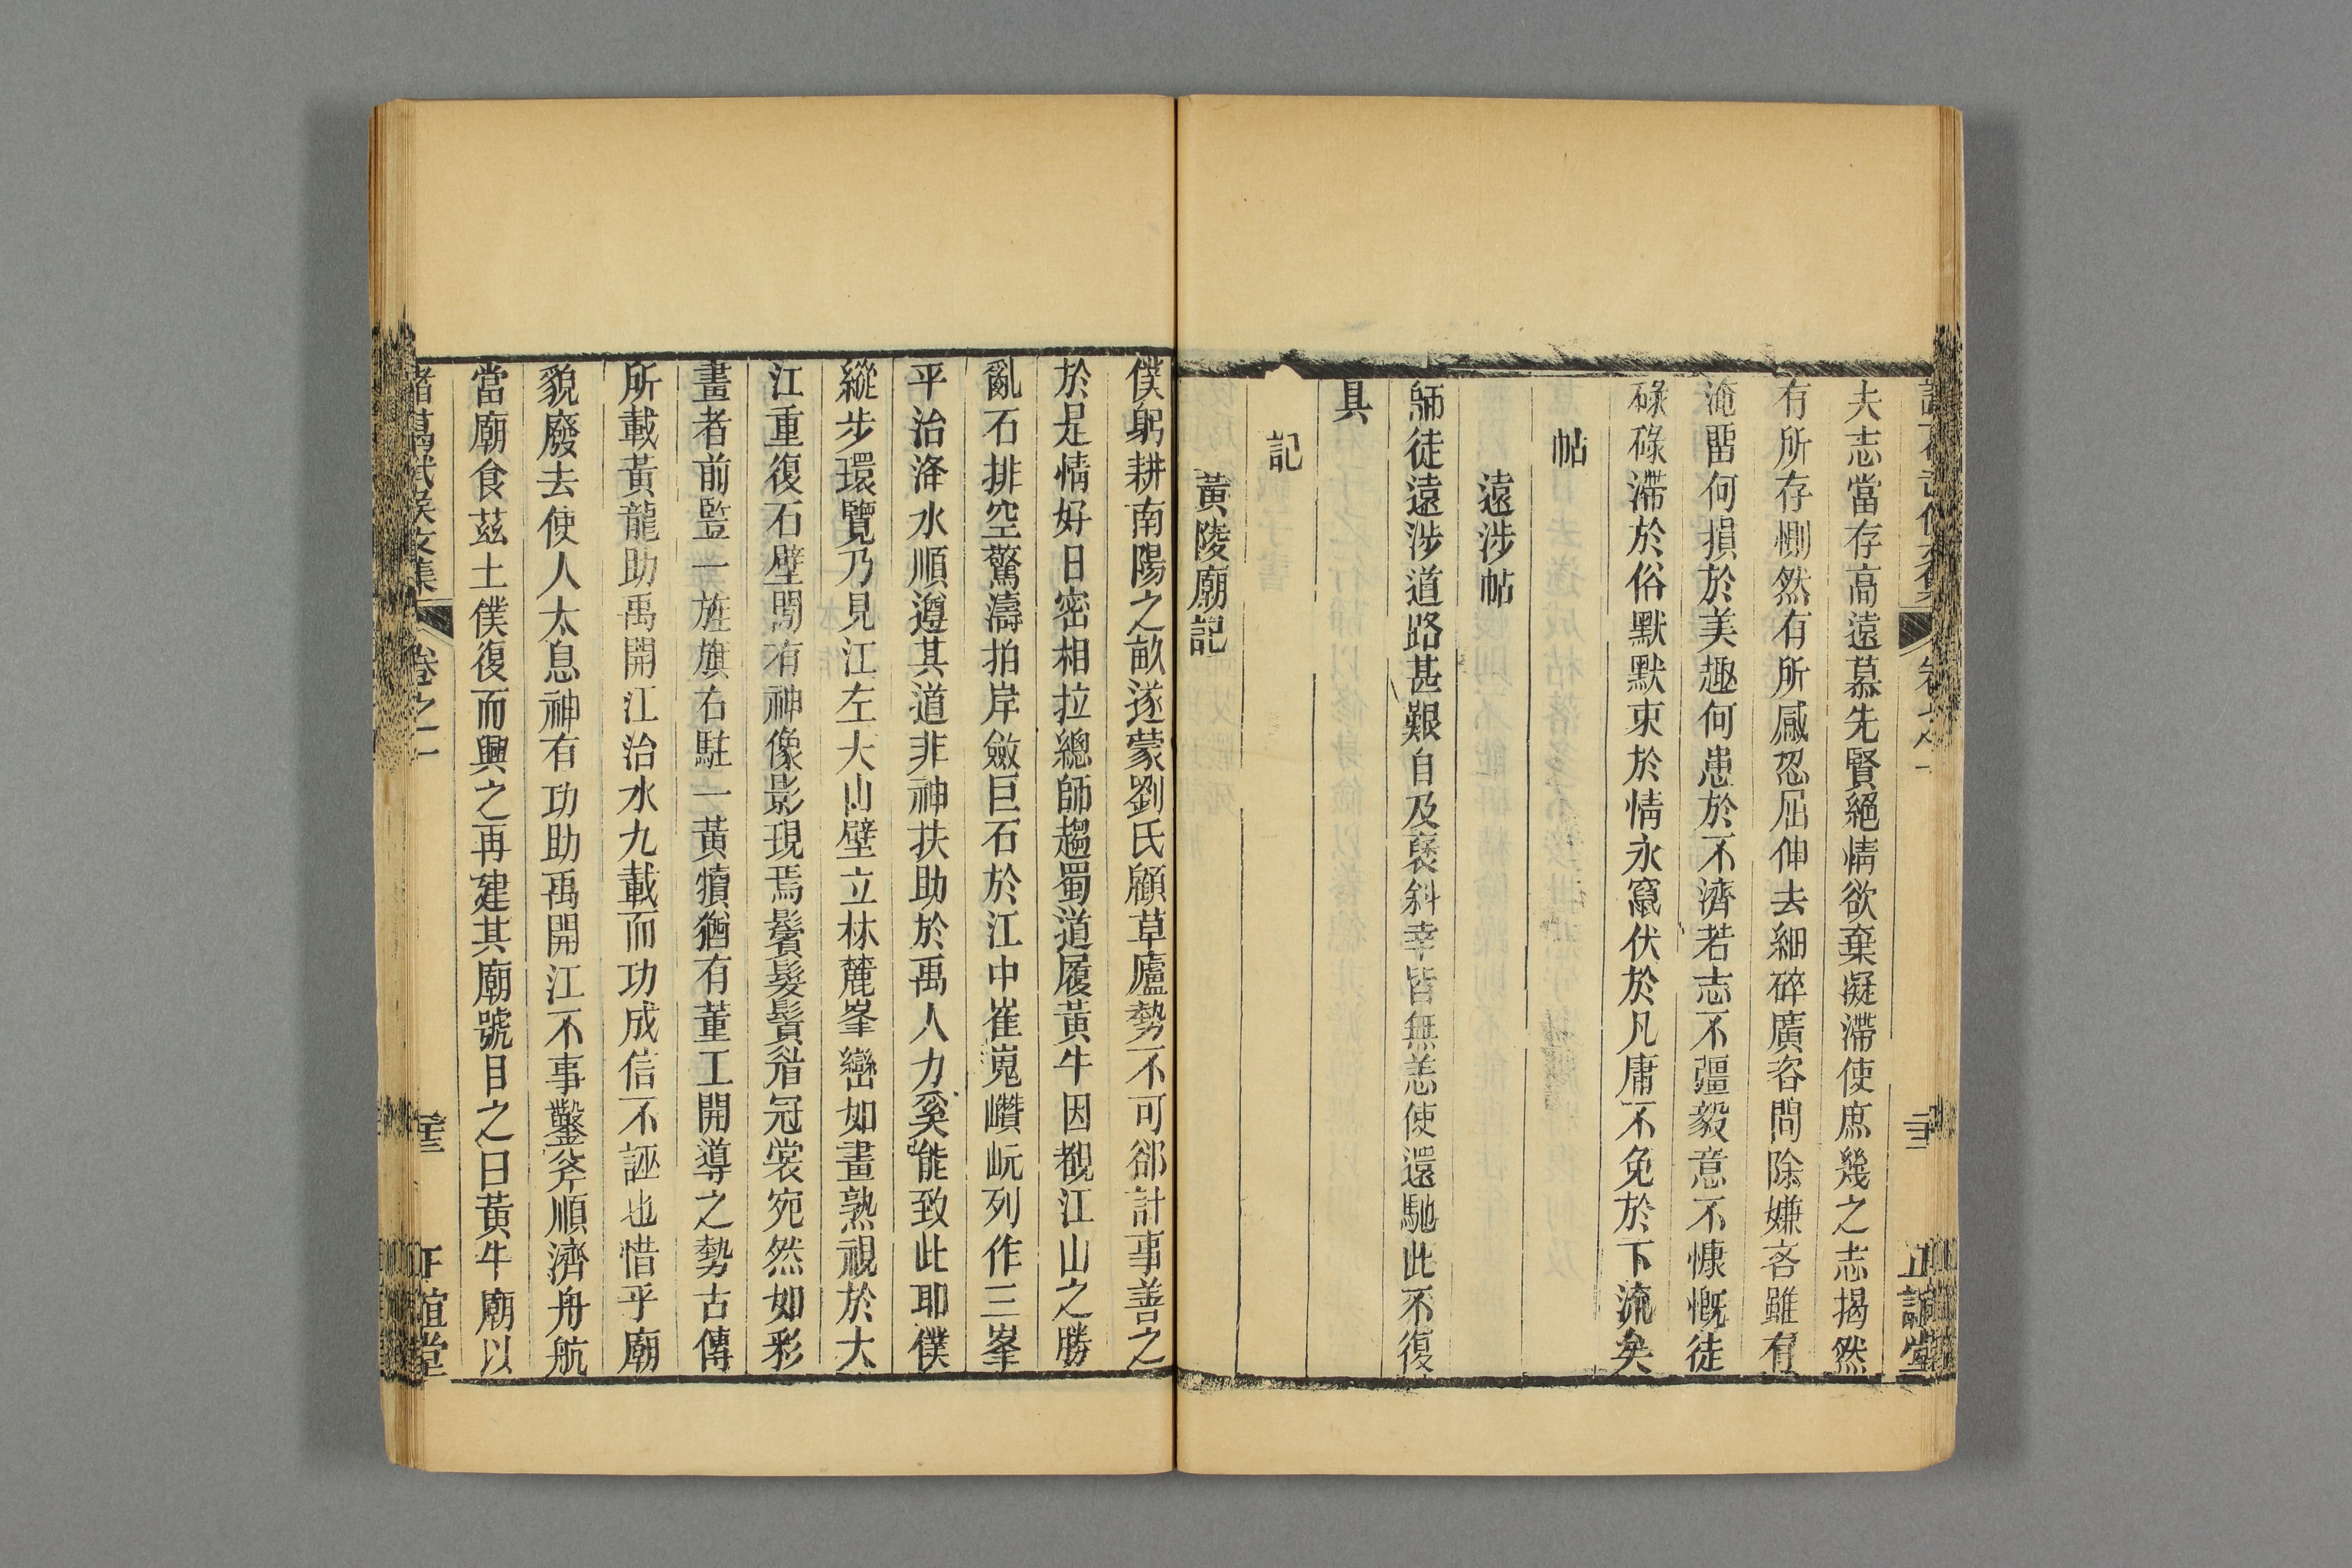 夫志當存高遠慕先賢絕情欲棄凝滯使庶幾之志揭然
有所存惻然有所感忍屈伸去細碎廣咨問除嫌吝雖有
淹留何損於美趣何患於不濟若志不彊毅意不慷慨徒
碌碌滯於俗默默束於情永竄伏於凡庸不免於下流矣
帖
遠涉帖
師徒遠涉道路甚艱自及褒斜幸皆無恙使還馳此不復
具
記
黃陵廟記
僕躬耕南陽之畝遂蒙劉氏顧草廬勢不可郤計事善之
於是情好日密相拉總師趨蜀道履黃牛因覩江山之勝
亂石排空驚濤拍岸斂巨石於江中崔嵬巑岏列作三峯
平治洚水順遵其道非神扶助於禹人力奚能致此耶僕
縱步環覽乃見江左大山壁立林麓峯巒如畫熟視於大
江重復石壁閒有神像影現焉鬢髮鬚眉冠裳宛然如彩
畫者前豎一旌旗右駐一黃犢猶有董工開導之勢古傳
所載黃龍助禹開江治水九載而功成信不誣也惜乎廟
貌廢去使人太息神有功助禹開江不事鑿斧順濟舟航
當廟食茲土僕復而興之再建其廟號目之曰黃牛廟以
諸葛武侯文集 卷之一 正誼堂